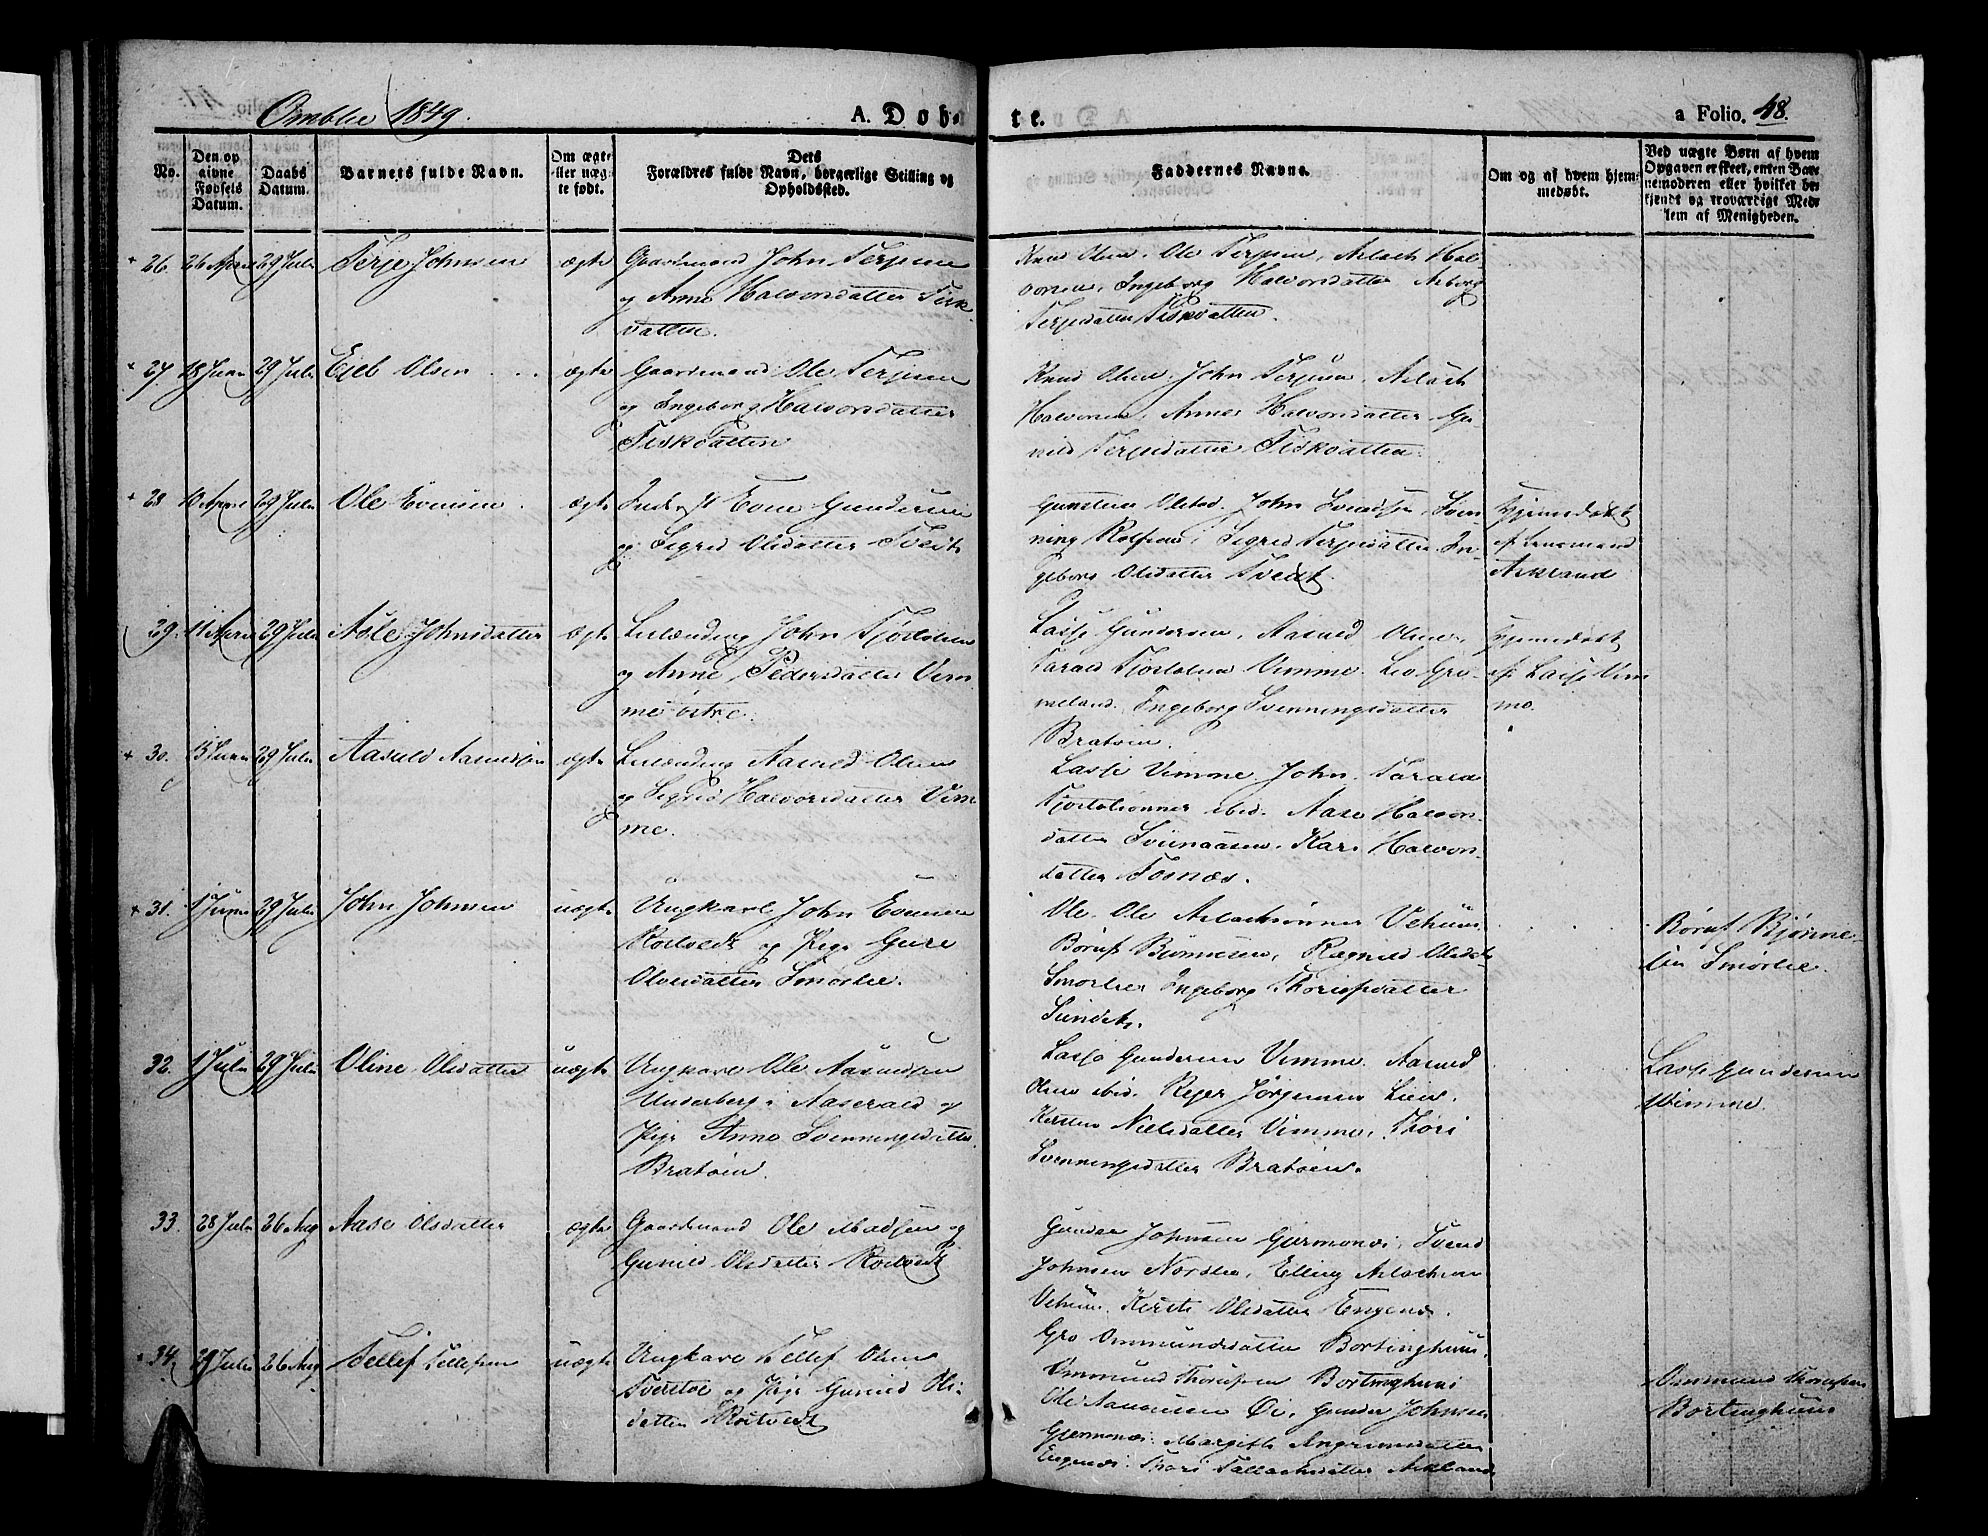 Omblie 1849.
A. Døb-
te.
a Folio. 48.
No.
Den op
givne
Fødsels
Datum.
Daabs
Datum.
Barnets fulde Navn.
Om ægte
eller uæg-
te født.
Dets
Forældres fulde Navn, borgerlige Stilling og
Opholdssted.
Faddernes Navne.
Om og af hvem hjem-
medøbt.
Ved uægte Børn af hvem
Opgaven er skeet, enten Bar-
nemoderen eller hvilket be-
kjendt og troværdigt Med-
lem af Menigheden.
26. 26 April 29 Juli Terje Johnsen ægte Gaardmand John Terjesen
og Anne Halvorsdatter Fisk-
vatten.
Knud Olsen. Ole Terjesen, Aslach Hal-
vorsen, Ingeborg Halvorsdatter Asborg
Terjesdatter Fiskvatten.
27. 18 Juni 29 Juli Eseb Olsen ægte Gaardmand Ole Terjesen
og Ingeborg Halvorsdatter
Fiskvatten
Knud Olsen. John Terjesen. Aslach
Halvorsen. Anne Halvorsdatter Gu-
nild Terjesdatter Fiskvatten.
28 10 April 29 Juli Ole Evensen ægte Inderst Even Gundersen
og Sigrid Olsdatter Tvedt
Gunsten Olstad. John Svendsen, Sven-
ning Rolfsen, Sigrid Terjesdatter In-
geborg Olsdatter Tvedt.
Hjemmedøbt
af Lensmand
Askland
29. 11 April 29 Juli Asle Johnsdatter ægte Leilænding John Tjostolsen
og Anne Pedersdatter Vim-
me østre.
Lasse Gundersen, Aasmd Olsen,
Tarald Tjostolsen Vimme. Leo Gri-
meland. Ingeborg Svenningsdatter
Bratøen.
Hjemmedøbt
af Lasse Vim
me.
30. 5 Juni 29 Juli Aasuld Aasmdsen ægte Leilænding Aasmd Olsen
og Sigrid Halvorsdatter Vim
me.
Lasse Vimme. John. Tarald
Tjostolsønner ibid. Aase Halvors-
datter Sveinaasen. Kari Halvors-
datter Fosnæs.
31. 1 Juni 29 Juli John Johnsen uægte Ungkarl John Evensen
Rosvedt og Pige Guro
Olsdatter Smørlie.
Ole. Ole Aslachsønner Vehuus.
Børuf Bjønnesen, Ragnild Olsdat-
Smørlie Ingeborg Thorisfsdatter
Sundet.
Børuf Bjønne-
sen Smørlie.
32. 1 Juli 29 Juli Oline Olsdatter uægte Ungkarl Ole Aasmdsen
Underberg i Aaserald og
Pige Anne Svenningsdatter
Bratøen.
Lasse Gundersen Vimme. Aasmd
Olsen ibid. Rejer Jørgensen Lien.
Kersten Nielsdatter Vimme. Thori
Svenningsdatter Bratøen.
Lasse Gundersen
Vimme.
33. 28 Juli 26 Aug Aase Olsdatter ægte Gaardmand Ole Madsen og
Gunild Olsdatter Rosvedt
Gunder Johnsen Gjermonæs, Svend
Johnsen Nordlie, Elling Aslachsen
Vehuus. Kersti Olsdatter Engenæs.
Gro Ommundsdatter Bortinghuus.
34. 29 Juli 26 Aug Tellef Tellefsen uægte Ungkarl Tellef Olsen
Tverstøe og Pige Gunild Ols-
datter Rosvedt
Ommund Thorisfsen Bortinghuus
Ole Aanonsen Øi, Gunder Johnsen
Gjermonæs. Margith Angrimsdatter
Engenæs. Thori Tallachsdatter Askland
Ommund Thorisfsen
Bortinghuus